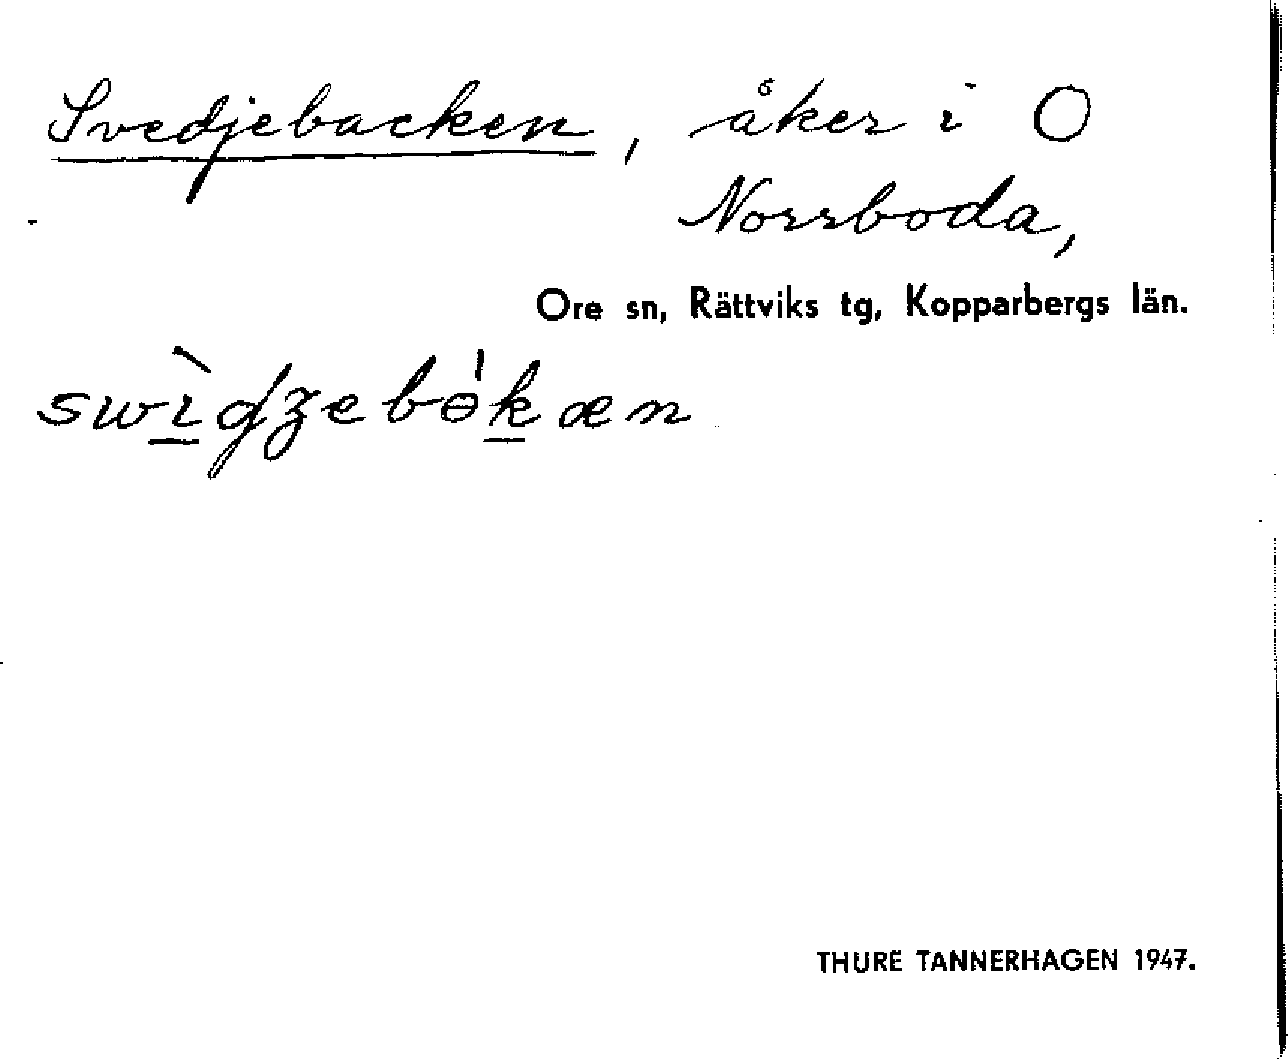 Svedjebacken, åker i O
Norrboda,
Ore sn, Rättviks tg, Kopparbergs län.
THURE TANNERHAGEN 1947.